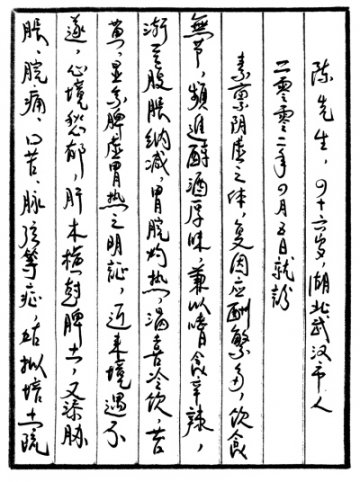 陈先生，四十六岁，湖北武汉市人
二零零二年四月五日就诊
素禀阴虚之体，复因应酬繁多，饮食
無节，頻进醇酒厚味，兼以嗜食辛辣，
渐至腹胀纳减，胃脘灼热，渴喜冷饮，苔
黄，显系脾虚胃热之明証，近来境遇不
遂，心境愁郁，肝木横尅脾土，又添胁
胀、脘痛、口苦、脉弦等症，姑拟培土疏